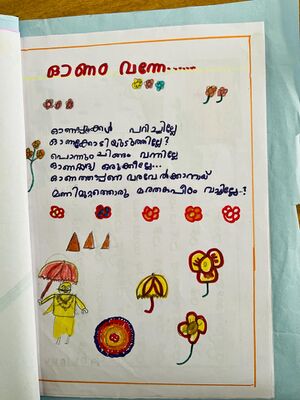 ഓണം വന്നേ......
ഓണപ്പൂക്കൾ പറിച്ചില്ലേ
ഓണക്കോടിയുടുത്തില്ലേ?
പൊന്നുംചിങ്ങം വന്നില്ലേ
ഓണസദ്യ ഒരുക്കീല്ലേ...
ഓണത്തപ്പനെ വരവേൽക്കാനായ്
മണ്ണിൻമുറ്റത്തൊരു മരതകപീഠം വച്ചില്ലേ-?